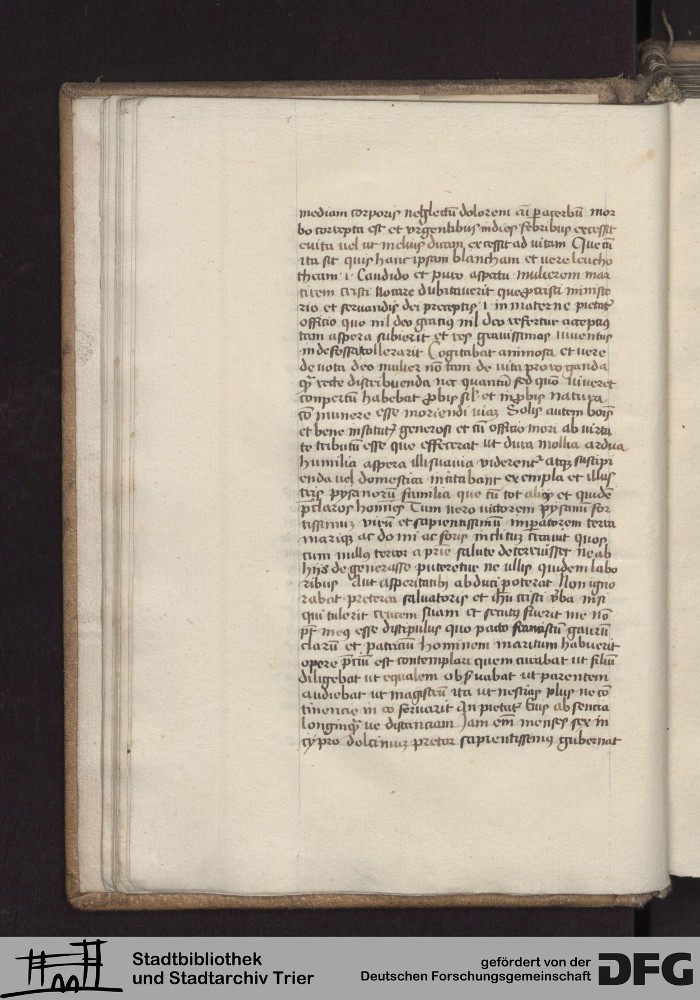 mediam corporis neglectū dolorem cū p acerbū mor
bo correpta est et vrgentibus indies febribus excessit
e uita uel ut melius dicam excessit ad vitam Que cū
ita sit quis hanc ipsam blancham et vere leucho
theam .i. Candido et puro aspectu mulierem mar
tirem cristi notare dubitauerit que p cristi ministe
rio et seruandis dei preceptis .i. in materne pietatꝭ
officio quo nil deo gratiꝯ nil deo refertur acceptiꝯ
tam aspera subierit et res grauissimas iuuentus
indefossa tollerarit Cogitabat animosa et vere
de uota deo mulier nō tam de vita prouoganda
qꝫ recte distribuenda nec quantū sed quō viueret
conpertū habebat probis sil' et inprobis natura
cōmunere esse moriendi viaꝫ Solis autem bonis
et bene institutꝭ generosi et cū officio mori ab virtu
te tributū esse que effecerat ut dura mollia ardua
humilia aspera illi suauia viderentᷣ atqꝫ suscipi
enda uel domestica incitabant exempla et illus
tris pysanorū familia que cū tot alios et quidē
pclaros homines Tum vero victorem pysanū for
tissimuꝫ virū et sapientissimū imperatorem terra
mariqꝫ ac domi ac foris inclituꝫ creauit quos
cum nullus terror a prie salute deterruisset ne ab
hijs degenerasse puteretur ne ullis quidem labo
ribus Aut asperitatibꝫ abduci poterat Non igno
rabat preterea saluatoris et ihū cristi vba nisi
qui tulerit crucem suam et secutꝯ fuerit me nō
pt' meꝯ esse discipulus quo pacto
clarū et patriciū hominem maritum habuerit
opere prciū est contemplari quem curabat ut filiū
diligebat ut equalem obsuabat ut parentem
audiebat ut magistrū ita ut nescias plus ne cō
tinencie in eo seruarit an pietatꝭ Eius absencia
longinqꝫ ue distanciam Jam em menses sex in
cypro dolcinuꝫ pretor sapientissimꝯ gubernat
Stadtbibliothek
und Stadtarchiv Trier
gefördert von der
Deutschen Forschungsgemeinschaft
DFG